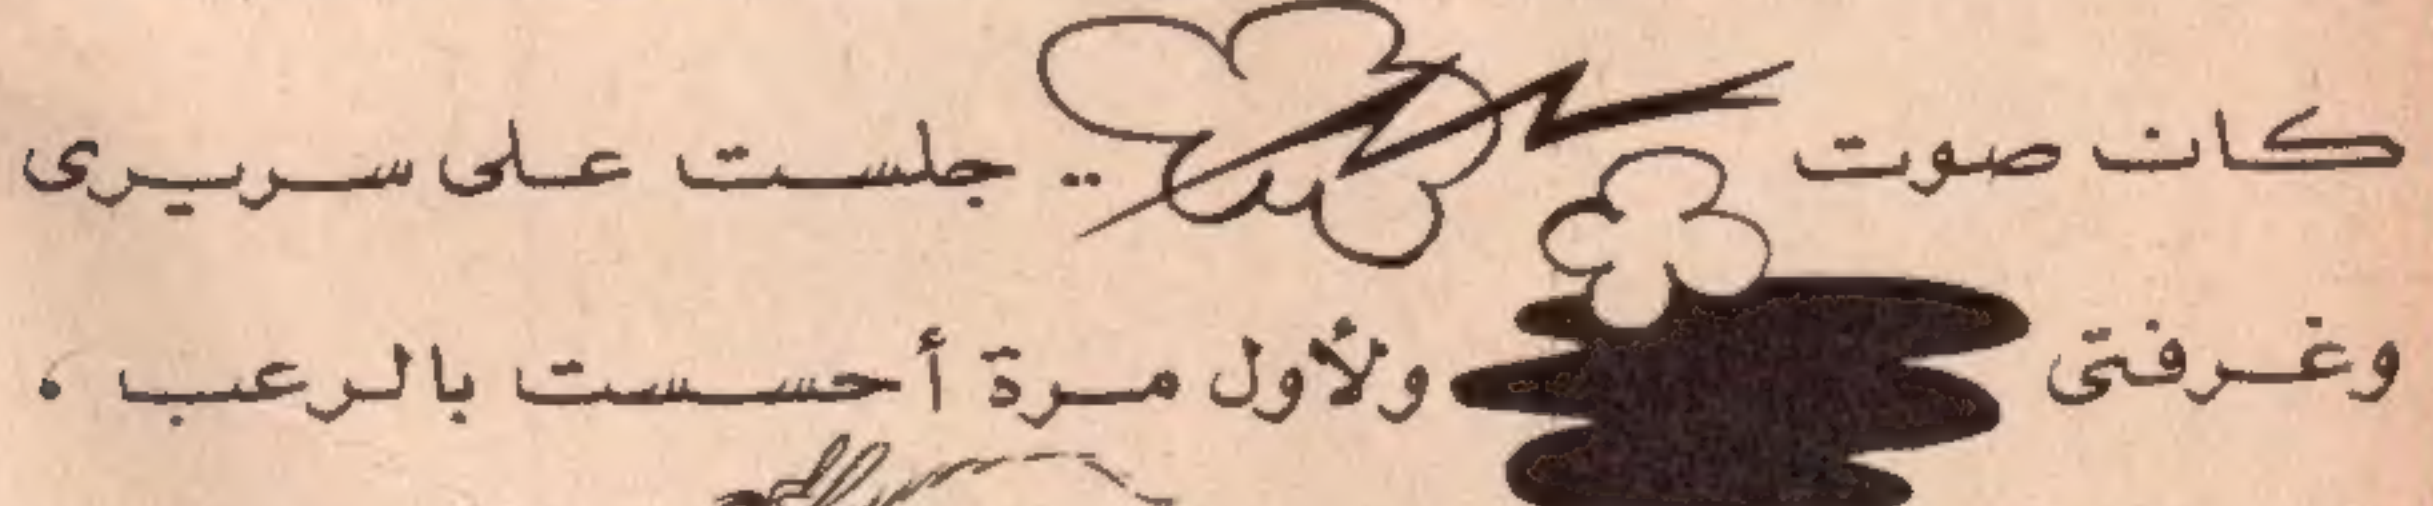 كان صوت .. جلست على سريرى
وغرفتى ولأول مرة أحسست بالرعب .